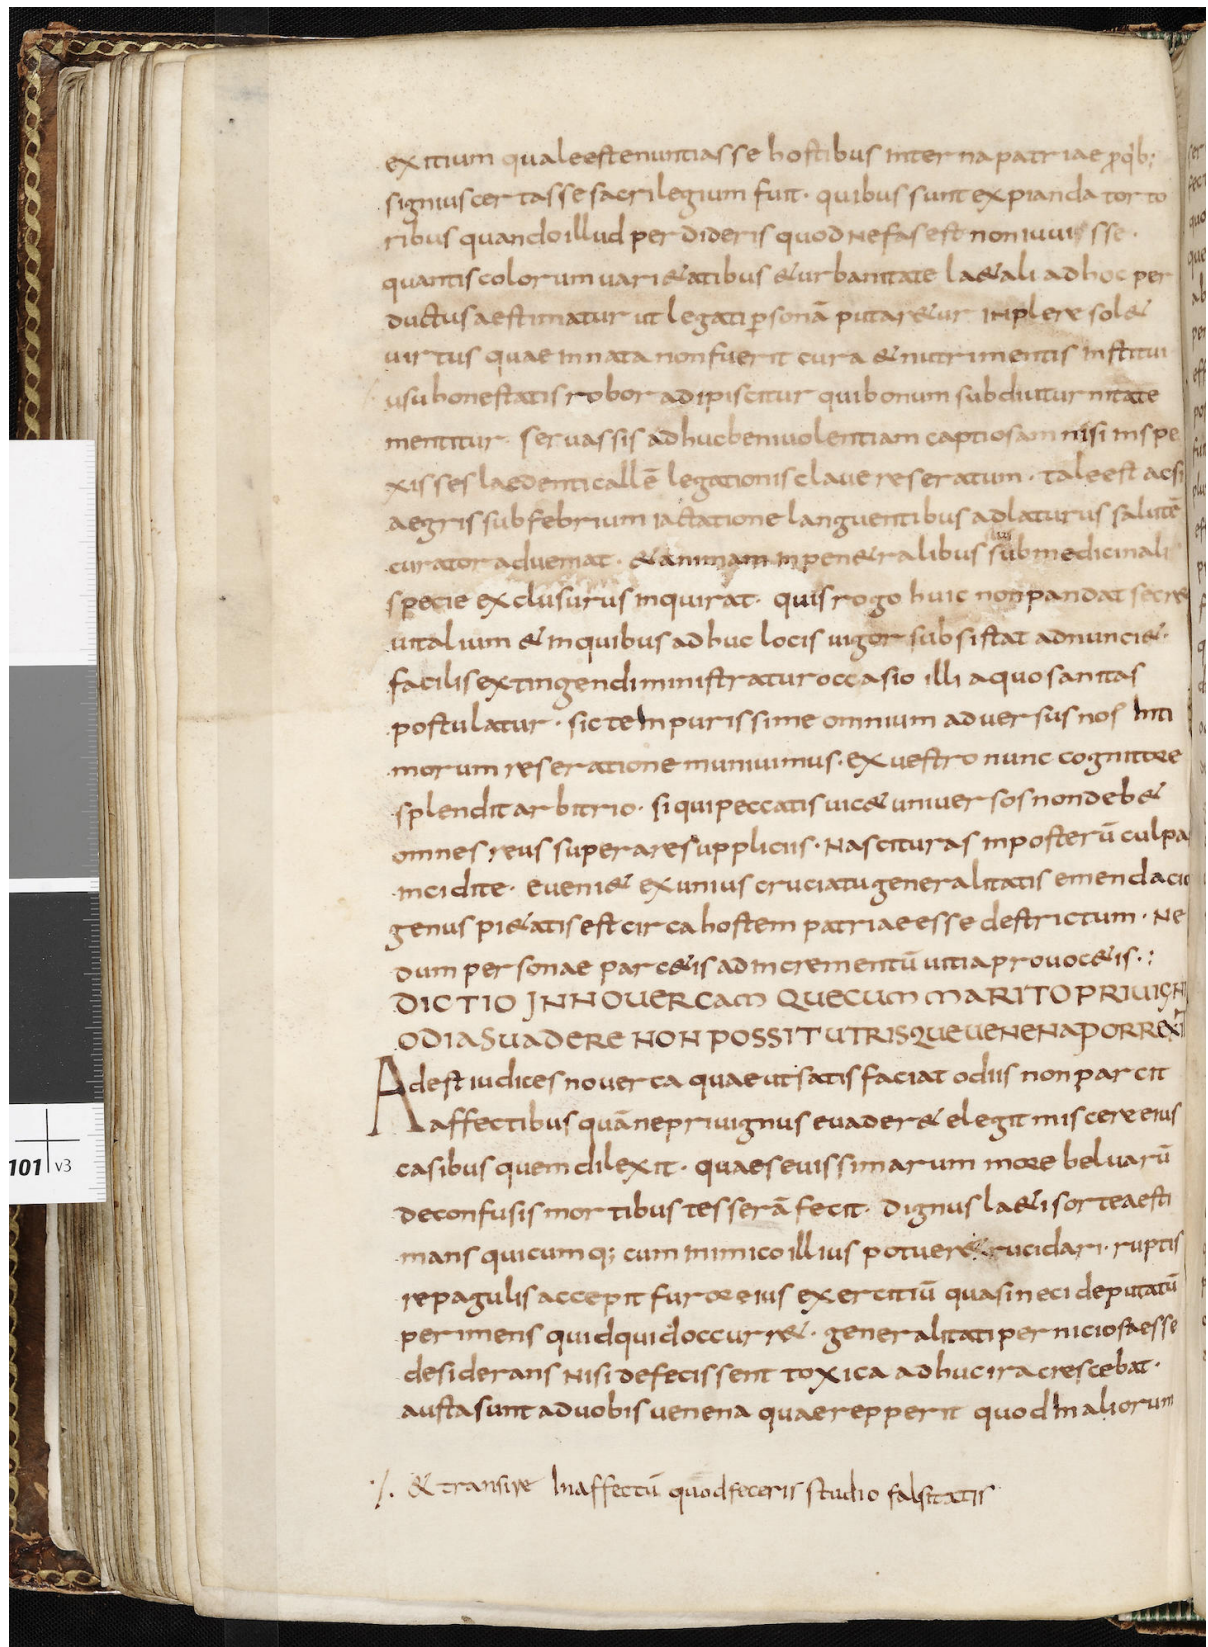 exitium quale est enuntiasse hostibus interna patriae ꝓ q'b;
signius certasse sacrilegium fuit· quibus sunt expianda torto
ribus quando illud perdideris quod nefas est non iuuisse·
quantis colorum uari&atibus & urbanitate la&ali ad hoc per
ductus aestimatur ut legati ꝑsonā putar&ur implere sol&
uirtus quae innata non fuerit cura & nutrimentis institui
usu honestatis robor adipiscitur qui bonum sub diuturnitate
mentitur· seruassis adhuc beniuolentiam captiosam nisi inspe
xisses laedenti callē legationis claue reseratum· tale est acsi
aegris sub febrium iactatione languentibus adlaturus salutē
curator adueniat· & animam in pen&ralibus sub medicinali
specie exclusurus inquirat· quis rogo huic non pandat secre
uitalium & in quibus adhuc locis uigor subsistat adnunci&·
facilis extingendi ministratur occasio illi a quo sanitas
postulatur· sic te inpurissime omnium aduersus nos inti
morum reseratione muniuimus· ex uestro nunc cognitore
splendit arbitrio· si qui peccatis uic& uniuersos non deb&
omnes reus superare suppliciis· Nascituras in posterū culpa
incidite· eueni& ex unius cruciatu generalitatis emendacio
genus pi&atis est circa hostem patriae esse destrictum· Ne
dum personae parc&is ad incrementū uitia prouoc&is·:
DICTIO IN NOUERCAM QUE CUM MARITO PRIUIGNI
ODIA SUADERE NON POSSIT UTRISQUE UENENA PORREXIT
Adest iudices nouerca quae ut satisfaciat odiis non parcit
affectibus quā ne priuignus euader& elegit miscere eius
casibus quem dilexit· quae seuissimarum more beluarū
de confusis mortibus tesserā fecit· Dignus la&i sorte aesti
mans quicumq; cum inimico illius potuer& trucidari· ruptis
repagulis accepit furore eius exercitiū quasi neci deputatū
perimens quidquid occurr&· generalitati perniciosa esse
desiderans nisi defecissent toxica adhuc ira crescebat·
austa sunt a duobis uenena quae repperit quod in aliorum
·/. & transire in affectū quod feceris studio falsitatis